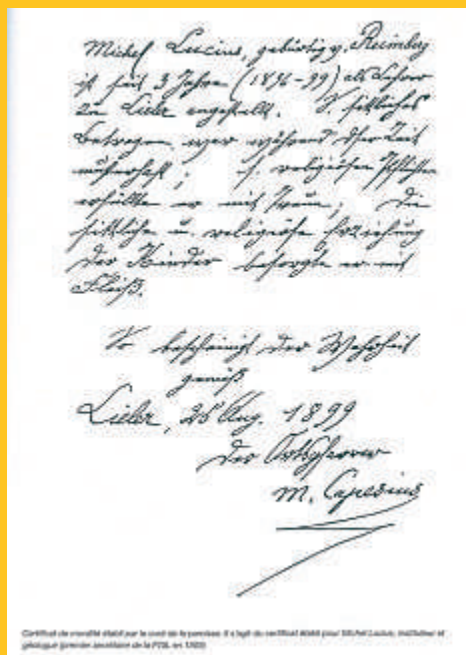 Michel Lucius, gebürtig v. Reimberg
ist seit 3 Jahren (1896-99) als Lehrer
zu Lieler angestellt. S. sittliches
Betragen war während dser Zeit
musterhaft; s. religiösen Pflichten
erfüllte er mit Treue; die
sittliche u. religiöse Erziehung
der Kinder besorgte er mit
Fleiß.
So bescheinigt der Wahrheit
gemäß
Lieler, 25 Aug. 1899
Der Ortspfarrer
M. Capesius
Certificat de moralité établi par le curé de la paroisse. Il s'agit du certificat établi pour Michel Lucius, instituteur et
géologue (premier secrétaire de la FGIL en 1905)